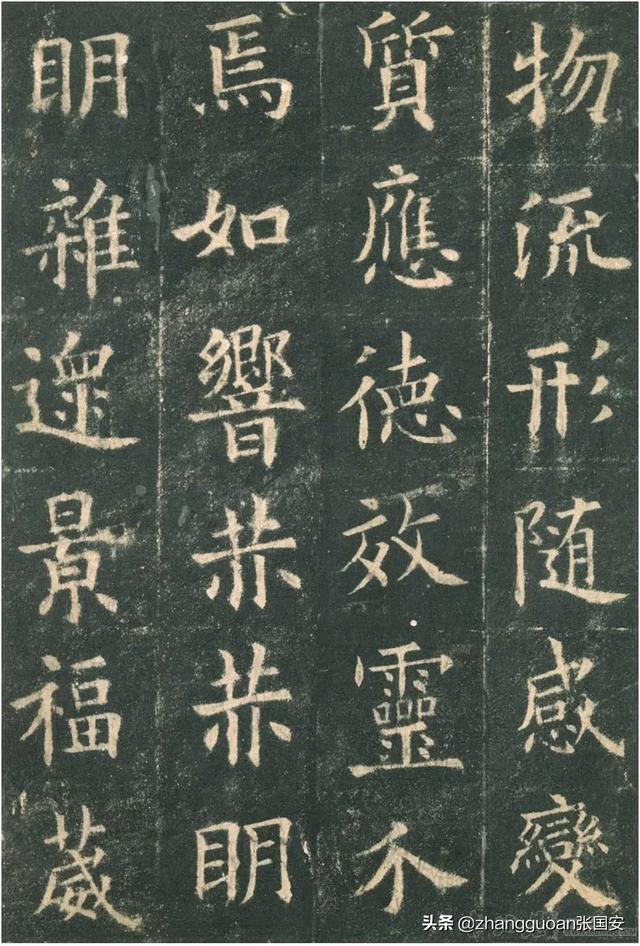 物流形随感變
質應德效靈介
焉如響赫赫明
明雜遝景福葳
头条 @zhangguoan张国安